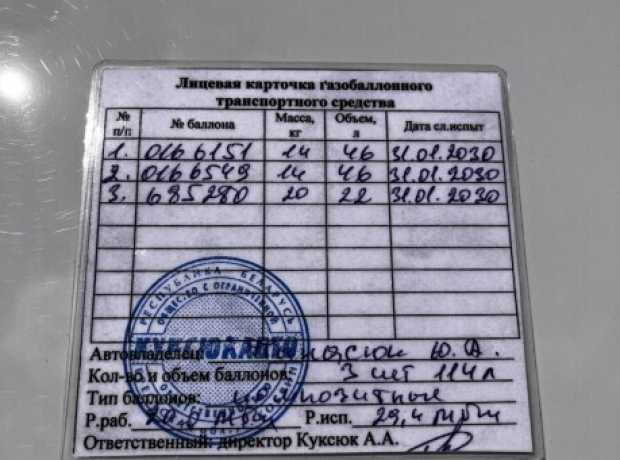 Лицевая карточка газобаллонного
транспортного средства
№ п/п № баллона Масса, кг Объем, л Дата сл.испыт
1. 0166151 14 46 31.01.2030
2. 0166549 14 46 31.01.2030
3. 685280 20 22 31.01.2030
РЕСПУБЛИКА БЕЛАРУСЬ
КУКСЮКАВТО
Автовладелец: Ю.А.
Кол-во и объем баллонов: 3 шт 114 л
Тип баллонов: композитные
Р.раб. МПа Р.исп. 29,4 МПа
Ответственный: директор Куксюк А.А.